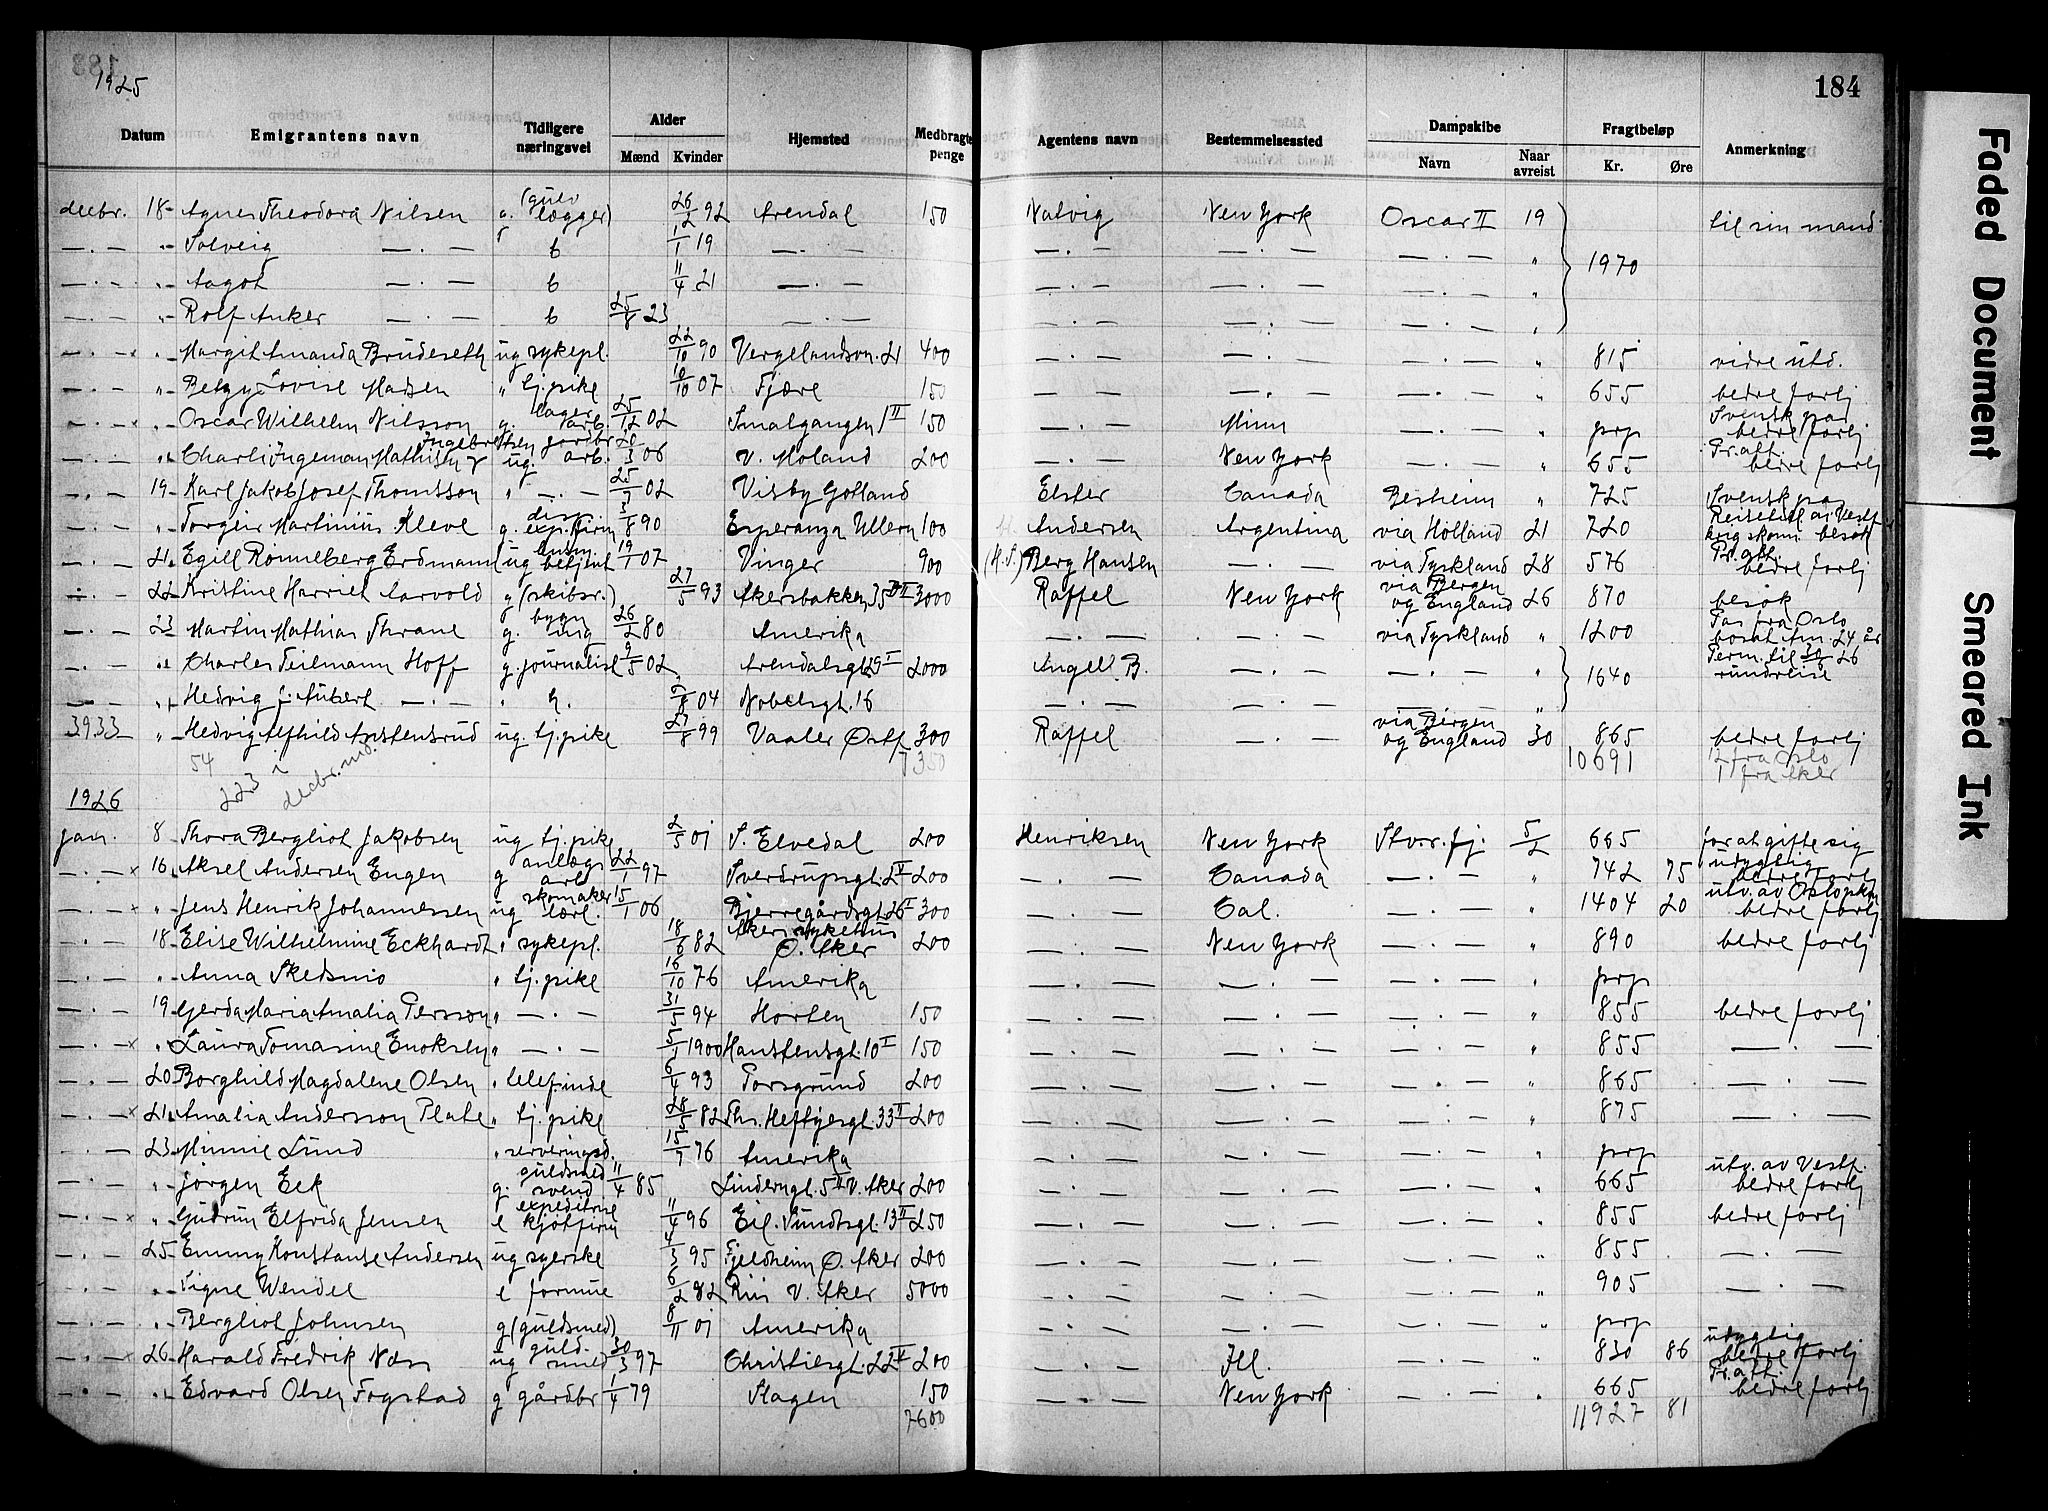 1925
184
Datum Emigrantens navn Tidligere næringsvei Alder Mænd Kvinder Hjemsted Medbragte penge Agentens navn Bestemmelsessted Dampskibe Navn Naar avreist Fragtbeløp Kr. Øre Anmerkning
decbr. 18 Agnes Theodora Nilsen g. (gulvlægger) 26/2 92 Arendal 150 Natvig New York Oscar II 19 til sin mand
— . — " Solveig — . — b 1/1 19 — . — — . — — . — — . — "
— . — " Aagot — . — b 11/4 21 — . — — . — — . — — . — " 1970
— . — " Rolf Anker — . — b 25/8 23 — . — — . — — . — — . — "
— . — x " Margit Amanda Brudeseth ug sykepl. 22/10 90 Vergelandsvn. 21 400 — . — — . — — . — " 815 vidre utd.
— . — " Betzy Lovise Madsen " tj.pike 10/10 07 Fjære 150 — . — — . — — . — " 655 bedre forlj
— . — x " Oscar Wilhelm Nilsson g. lager arb. 25/12 02 Smalgangen 1 II 150 — . — Minn — . — " prp Svensk pas bedre forlj
— . — " Charli Ingeman Mathisen Ingebretsen ug. jordbr. arb. 20/3 06 V. Moland 200 — . — New York — . — " 655 Fr.att. bedre forlj
— . — 19 Karl Jakob Josef Thomsson " — . — 25/7 02 Visby Gotland Elster Canada Besheim " 725 Svensk pas
— . — " Torgeir Martinius Kleve g. disp. exp.firm 3/8 90 Esperanza Ullern 100 Andersen Argentina via Holland 21 720 Reisetill. av Vestf krigskomm. besøk
— . — 21 Egill Rønneberg Erdmann ug betjent 19/1 07 Vinger 900 (H.S.) Berg Hansen — . — via Tyskland 28 576 Fr.att. bedre forlj
— . — 22 Kristine Harriet Aarvold g (skibsr.) 27/5 93 Akersbakken 35 3000 Raffel New York via Bergen og England 26 870 besøk
— . — 23 Martin Mathias Thrane g. bygn ing 26/2 80 Amerika — . — — . — via Tyskland " 1200 Pas fra Oslo bosat Am. 24 år
— . — " Charles Teilmann Hoff g. journalist 9/5 02 Arendalsgt 29 I 2000 Angell B. — . — — . — " 1640 Perm. til 30/6 26 rundreise
— . — " Hedvig J. Aubert — . — " h. 04 Nobelsgt. 16 — . — — . — — . — "
3933 " Hedvig Alfhild Asstensrud ug. tj.pike 27/8 99 Vaaler Østf 300 Raffel — . — via Bergen og England 30 865 bedre forlj
54 7350 10691 12 fra Oslo
223 i decbr. md. 11 fra Aker
1926
jan. 8 Thora Bergliot Jakobsen ug tj.pike 2/5 01 S. Elvedal 200 Henriksen New York Stv.r.fj. 5/2 665 for at gifte sig
— . — x 16 Aksel Andersen Engen g anlegs arb 22/1 97 Sverdrupsgt. 2 V 200 — . — Canada — . — " 742 75 udygtig bedre forlj
— . — x " Jens Henrik Johannessen ug skomaker lærl. 15/1 06 Bjerregårdsgt 26 I 300 — . — Cal. — . — " 1404 20 utv. av Oslo pkm bedre forlj
— . — 18 Elise Wilhelmine Eckhardt " sykepl. 18/6 82 Aker sykehus Ø. Aker 200 — . — New York — . — " 890 bedre forlj
— . — " Anna Skedsmo " tj.pike 16/10 76 Amerika — . — — . — — . — " prp
— . — 19 Gerda Maria Amalia Persson " — . — 31/5 94 Horten 150 — . — — . — — . — " 855 bedre forlj
— . — x " Laura Tomasine Enoksen " — . — 5/1 1900 Hansteensgt. 10 I 150 — . — — . — — . — " 855 — . —
— . — 20 Borghild Magdalene Olsen " telef.inde 6/4 93 Porsgrund 200 — . — — . — — . — " 865 — . —
— . — x 21 Amalia Andersson Plate " tj.pike 28/5 82 Ths. Heftyesgt. 33 II 200 — . — — . — — . — " 875 — . —
— . — 23 Minnie Lund " serveringsd. 15/7 76 Amerika — . — — . — — . — " prp
— . — " Jørgen Eek g. guldsmed svend 11/4 85 Linderngt. 5 II V. Aker 200 — . — — . — — . — " 665 utv. av Vestf. bedre forlj
— . — x " Gudrun Elfrida Jensen e expeditrise kjøtfirm 11/4 96 Eil. Sundtsgt. 13 II 250 — . — — . — — . — " 855 bedre forlj
— . — 25 Emmy Konstanse Andersen ug syerske 4/3 95 Fjeldheim Ø. Aker 200 — . — — . — — . — " 855 — . —
— . — " Signe Wendel e formue 6/2 82 Riis V. Aker 5000 — . — — . — — . — " 905 — . —
— . — " Bergliot Johnsen g (guldsmed) 8/11 01 Amerika — . — — . — — . — " prp
— . — x 26 Harald Fredrik Næss ug guld smed 30/3 97 Christiesgt. 22 V 200 — . — Ill. — . — " 830 86 udygtig bedre forlj
— . — " Edvard Olsen Fogstad g gårdbr 1/4 79 Slagen 150 — . — New York — . — " 665 Fr.att. bedre forlj
7600 11927 81
Faded Document
Smeared Ink